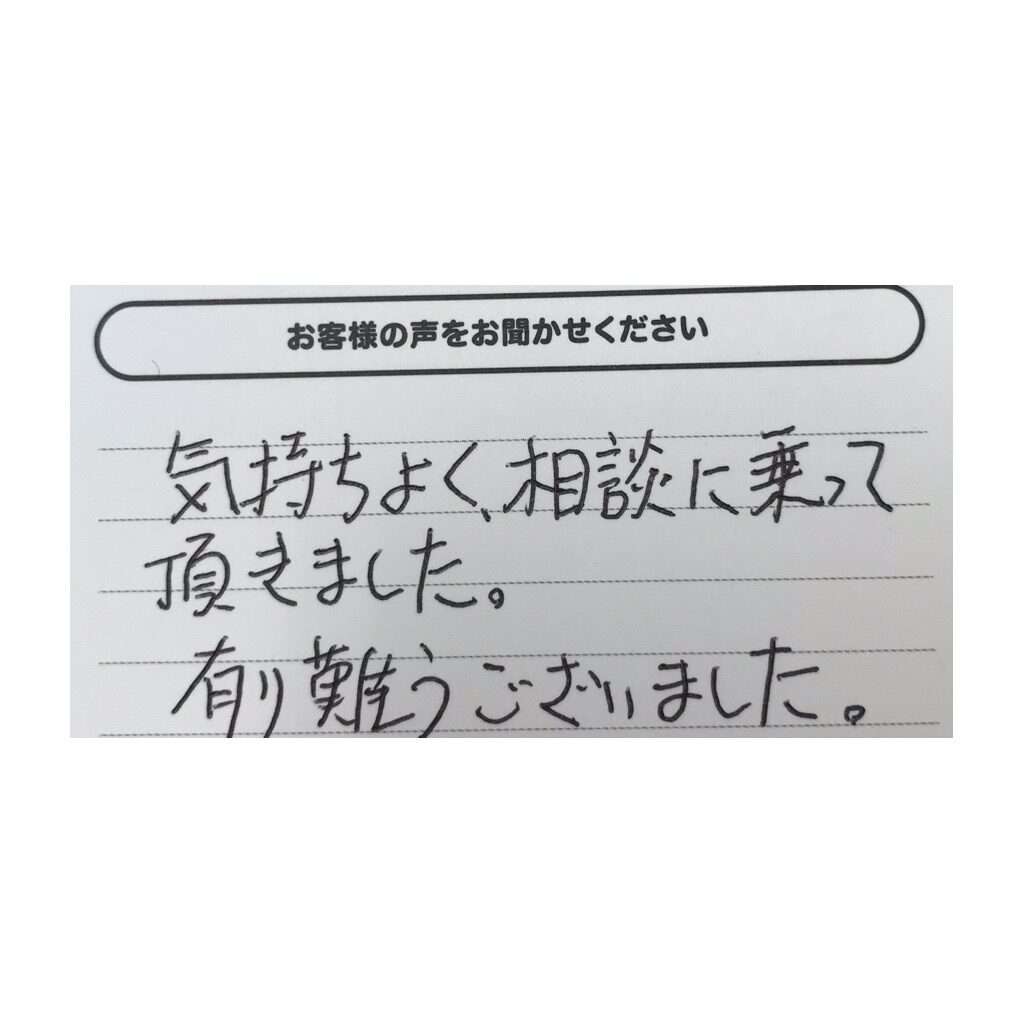 お客様の声をお聞かせください
気持ちよく、相談に乗って
頂きました。
有り難うございました。